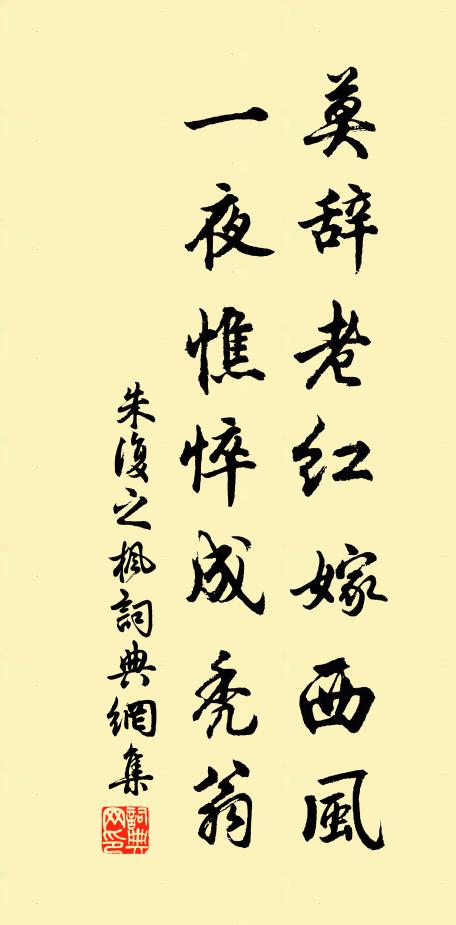 莫辞老红嫁西風
一夜憔悴成秃翁
朱復之枫詞典網集
詞典网印